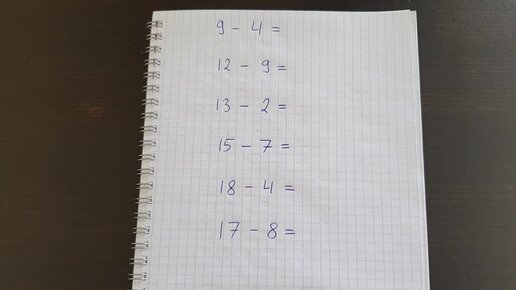 9 - 4 =
12 - 9 =
13 - 2 =
15 - 7 =
18 - 4 =
17 - 8 =